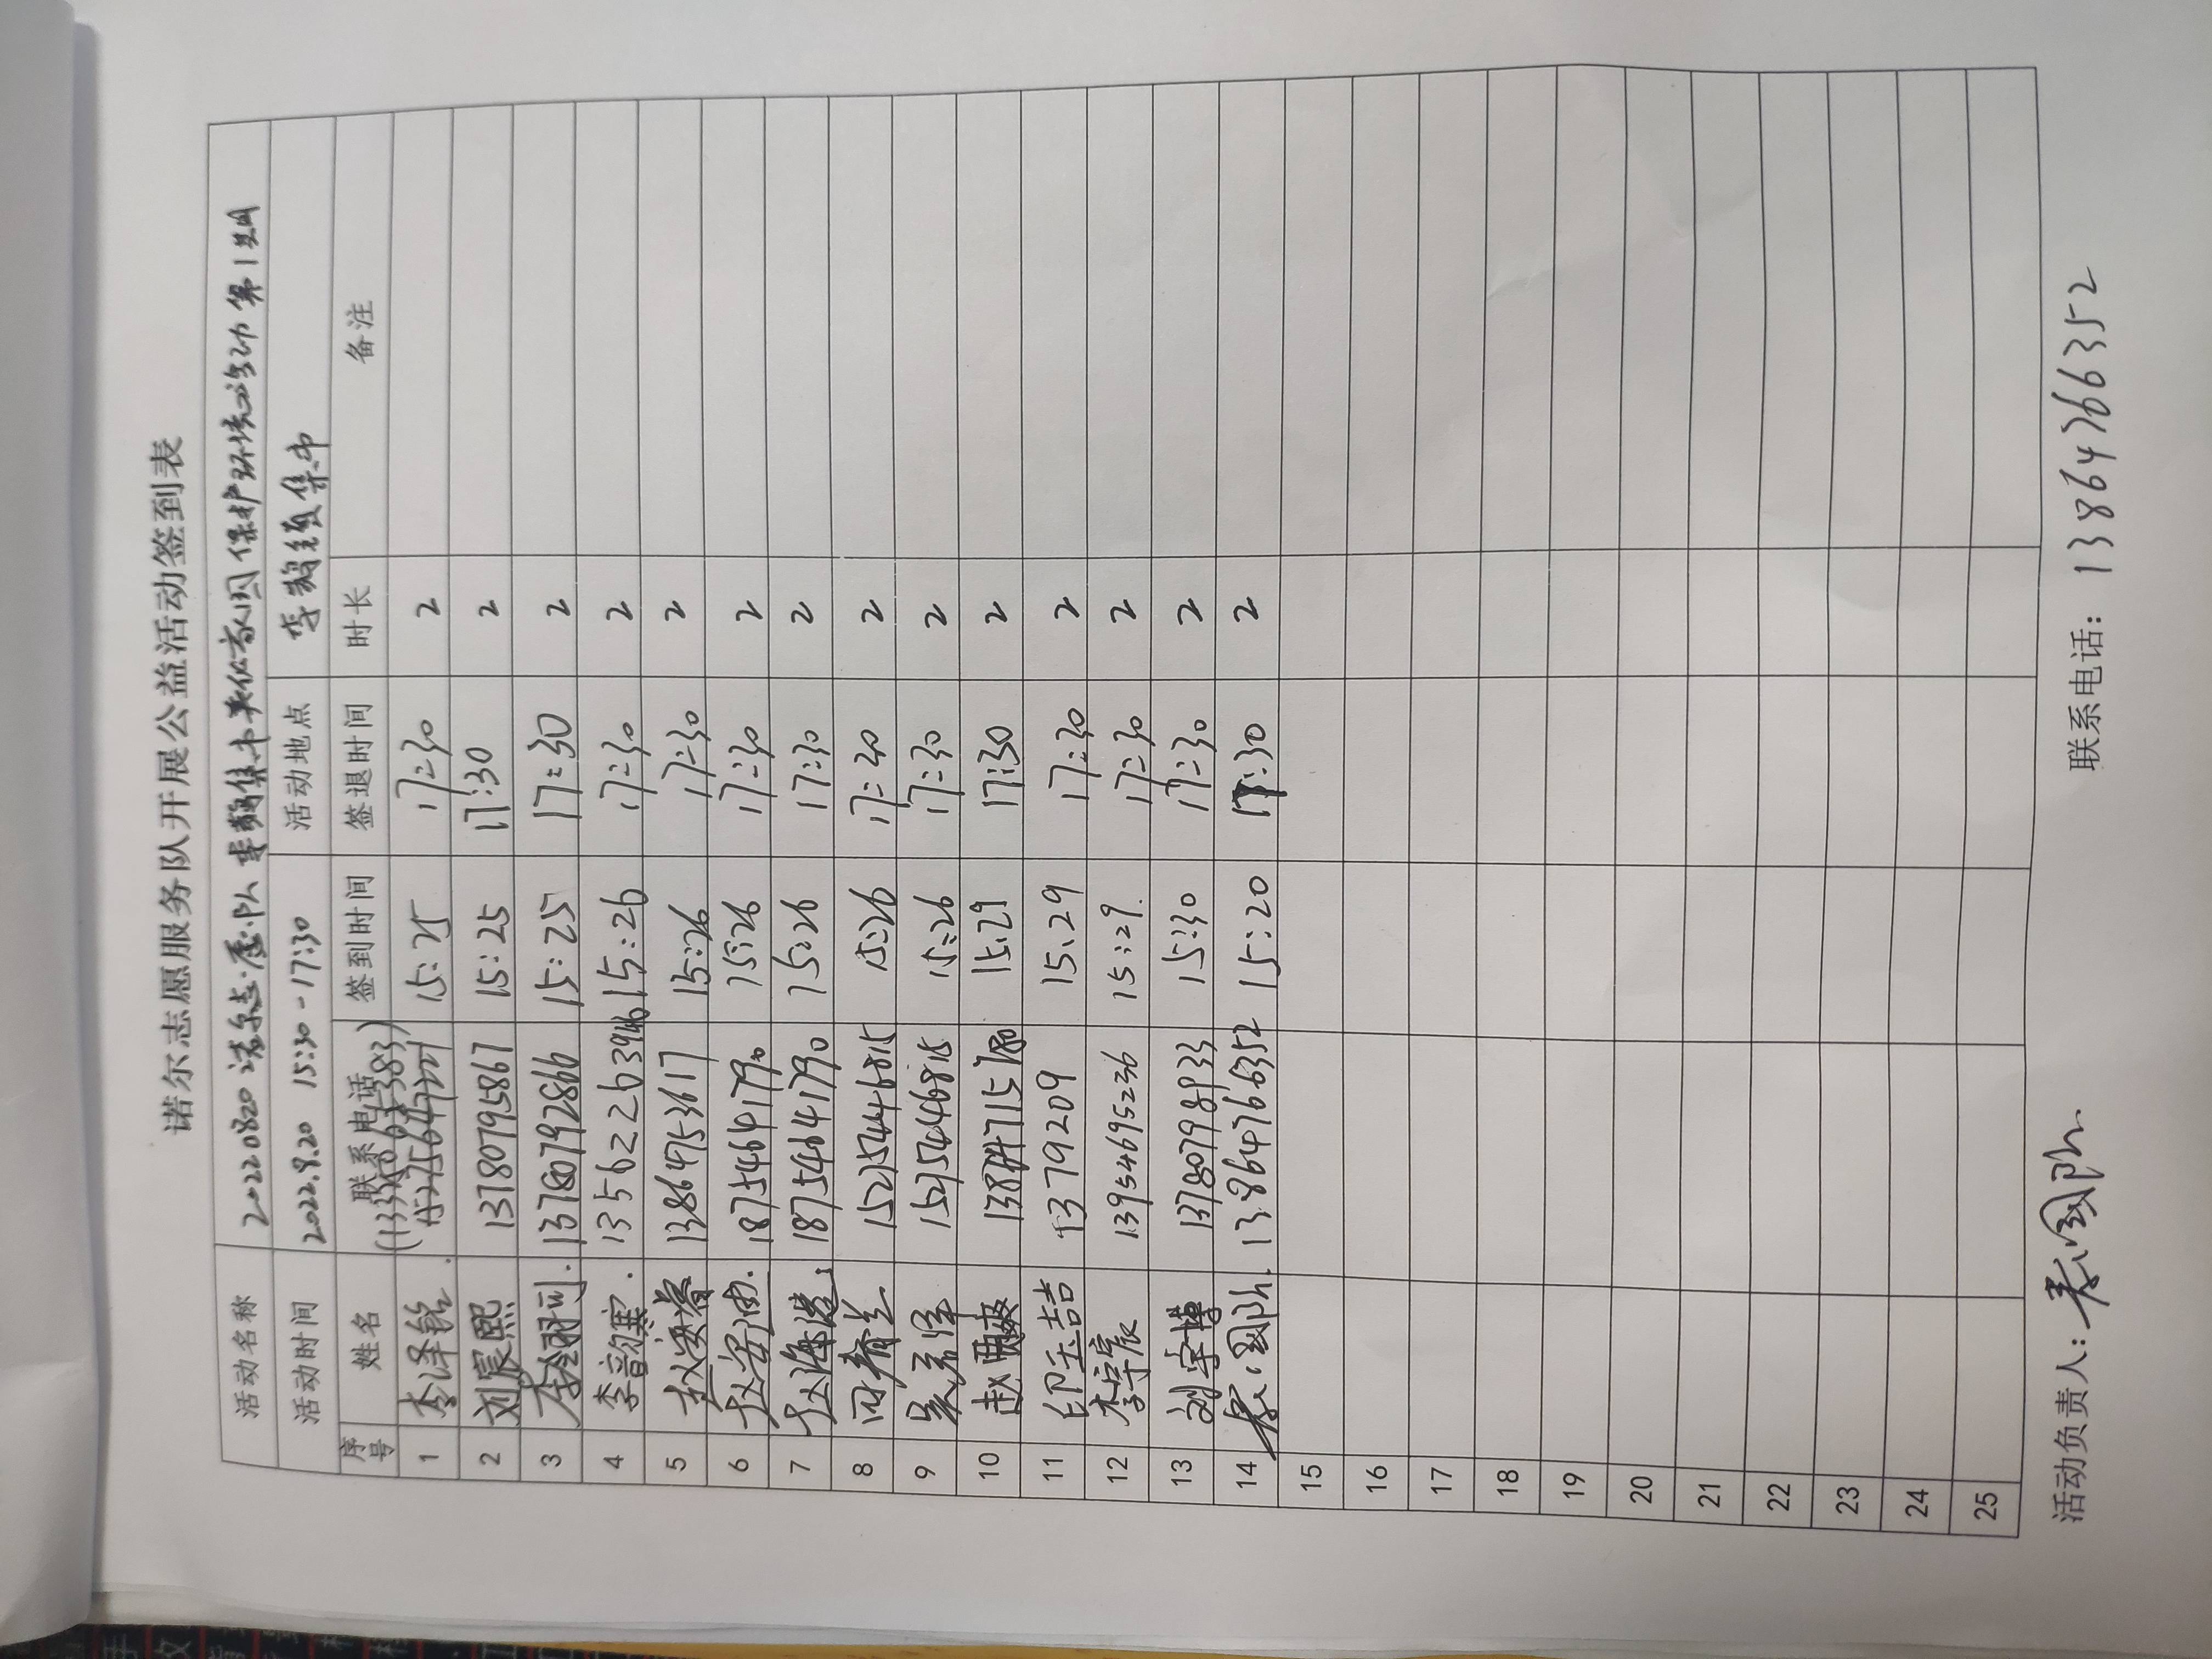 诺尔志愿服务队开展公益活动签到表
活动名称 20220820 诺尔志愿队 李鹊集市 保护环境 活动 第1期
活动时间 2022.8.20 15:30-17:30 活动地点 李鹊镇集市
序号 姓名 联系电话 签到时间 签退时间 时长 备注
1 李泽铭 15:25 17:30 2
2 刘宸熙 13780795867 15:25 17:30 2
3 13780792866 15:25 17:30 2
4 李韵寒 13562263946 15:26 17:30 2
5 13864753617 15:26 17:30 2
6 18754641790 15:26 17:30 2
7 18754641790 15:26 17:30 2
8 15215446815 15:26 17:30 2
9 15215446815 15:26 17:30 2
10 赵 15:29 17:30 2
11 印玉喆 1379209 15:29 17:30 2
12 李宇宸 13954695236 15:29 17:30 2
13 刘宇 13780798933 15:30 17:30 2
14 13864766352 15:20 17:30 2
15
16
17
18
19
20
21
22
23
24
25
活动负责人: 联系电话: 13864766352